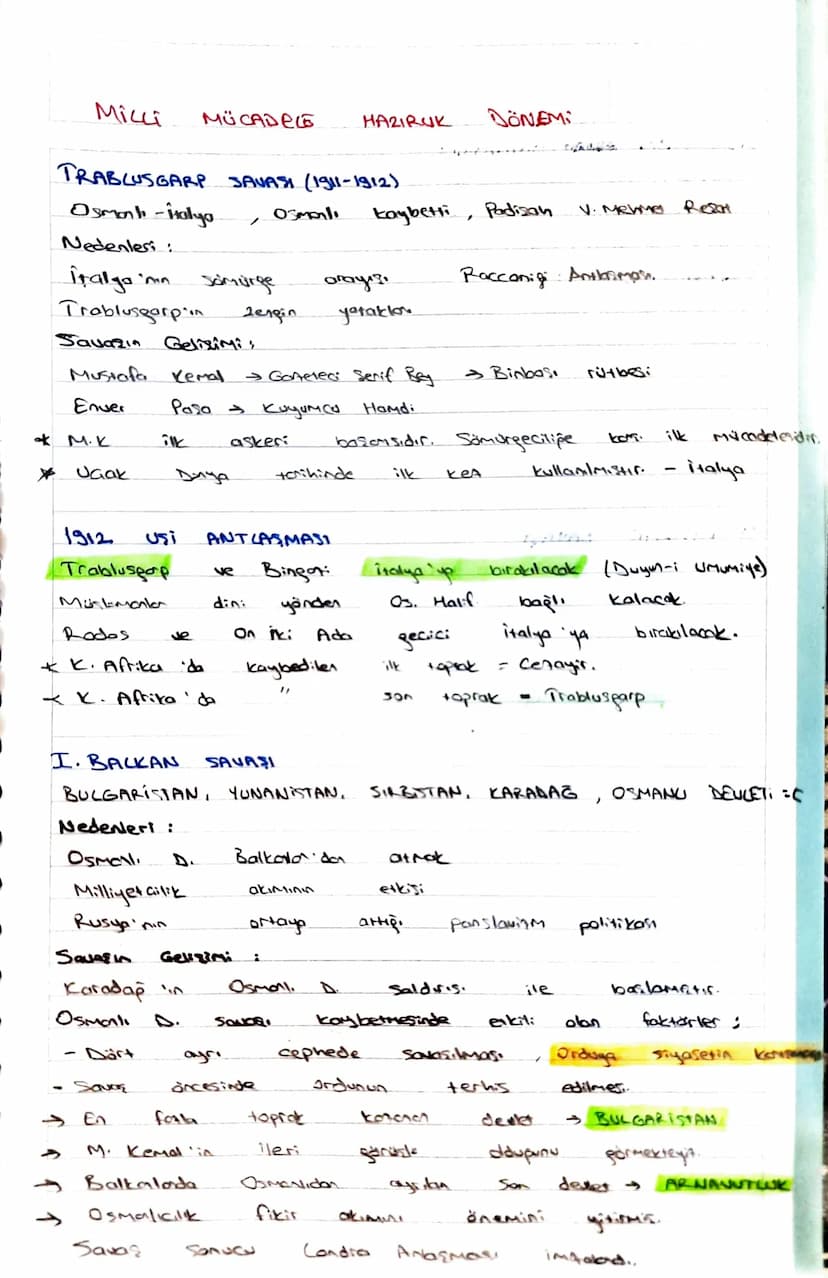 MİLLİ MÜCADELE HAZIRLIK DÖNEMİ
TRABLUSGARP SAVAŞI (1911-1912)
Osmanlı-İtalya , Osmanlı kaybetti , Padişah V. Mehmet Reşat
Nedenleri :
İtalya'nın sömürge arayışı Racconigi Antlaşması.
Trablusgarp'ın zengin yatakları
Savaşın Gelişimi ;
Mustafa Kemal → Gazeteci Şerif Bey → Binbaşı rütbesi
Enver Paşa → Kuyumcu Hamdi
* M.K ilk askeri başarısıdır. Sömürgeciliğe karşı ilk mücadelesidir.
* Uçak Dünya tarihinde ilk kez kullanılmıştır. - İtalya
1912 UŞİ ANTLAŞMASI
Trablusgarp ve Bingazi İtalya'ya bırakılacak (Duyun-i Umumiye)
Müslümanlar dini yönden Os. Halif bağlı kalacak.
Rodos ve On İki Ada geçici İtalya'ya bırakılacak.
* K. Afrika'da kaybedilen ilk toprak = Cezayir.
* K. Afrika'da " son toprak = Trablusgarp
I. BALKAN SAVAŞI
BULGARİSTAN, YUNANİSTAN, SIRBİSTAN, KARADAĞ , OSMANLI DEVLETİ =(
Nedenleri :
Osmanlı D. Balkalar'dan atmak
Milliyetcilik akımının etkisi
Rusya'nın ortaya attığı panslavizm politikası
Savaşın Gelişimi :
Karadağ'ın Osmanlı D. saldırısı ile başlamıştır.
Osmanlı D. savaşı kaybetmesinde etkili olan faktörler ;
- Dört ayrı cephede savaşılması , Orduya siyasetin karışması
- Savaş öncesinde ordunun terhis edilmesi.
→ En fazla toprak kazanan devlet → BULGARİSTAN
→ M. Kemal'in ileri görüşlü olduğunu görmekteyiz.
→ Balkalarda Osmanlıdan ayrılan son devlet → ARNAVUTLUK
→ Osmalıcılık fikir akımını önemini yitirmiş.
Savaş sonucu Londra Anlaşması imzaland..